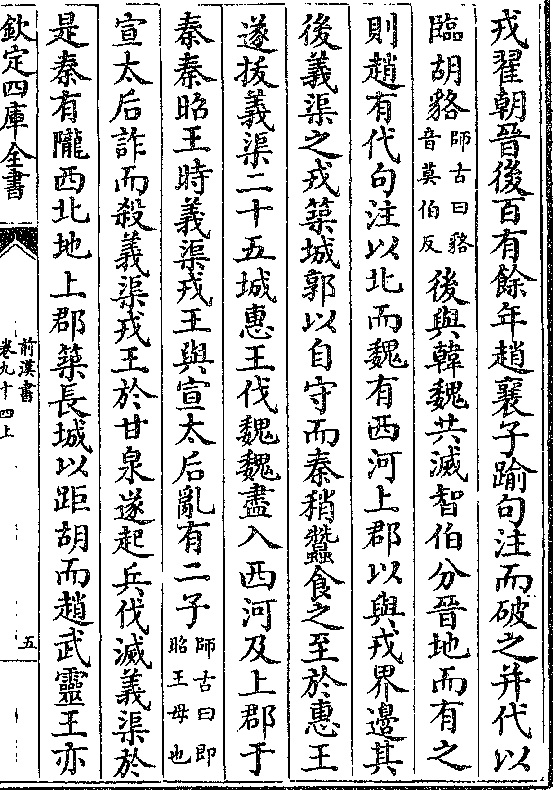 戎翟朝晉後百有餘年趙襄子踰句注而破之并代以
臨胡貉師古曰貉音莫伯反後與韓魏共滅智伯分晉地而有之
則趙有代句注以北而魏有西河上郡以與戎界邊其
後義渠之戎築城郭以自守而秦稍蠶食之至於惠王
遂拔義渠二十五城惠王伐魏魏盡入西河及上郡于
秦秦昭王時義渠戎王與宣太后亂有二子師古曰即昭王母也
宣太后詐而殺義渠戎王於甘泉遂起兵伐滅義渠於
是秦有隴西北地上郡築長城以距胡而趙武靈王亦
欽定四庫全書
前漢書
卷九十四上
五